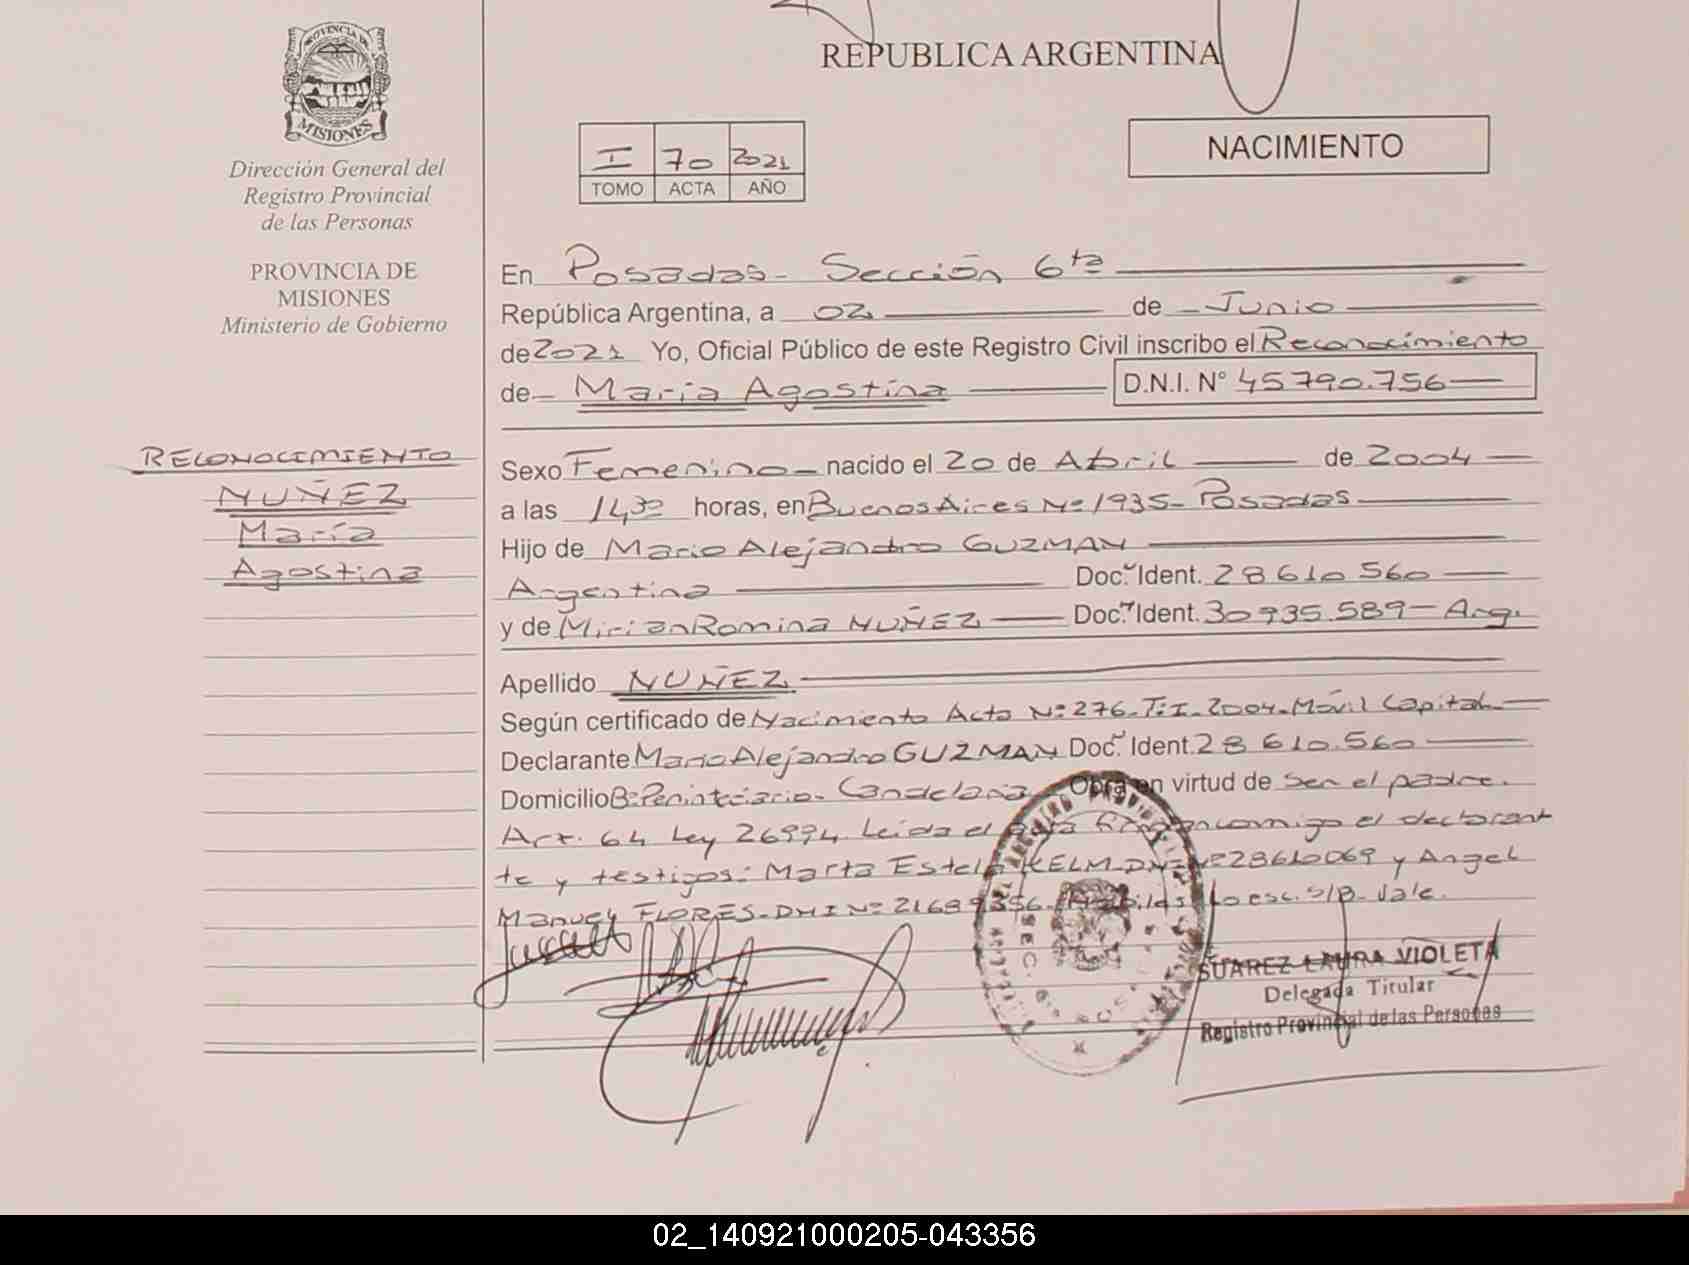 REPUBLICA ARGENTINA
PROVINCIA DE
MISIONES
Dirección General del
Registro Provincial
de las Personas
PROVINCIA DE
MISIONES
Ministerio de Gobierno
I 70 2021
TOMO ACTA AÑO
NACIMIENTO
RECONOCIMIENTO
NUÑEZ
María
Agostina
En Posadas - Sección 6ta
República Argentina, a 02 de Junio
de 2021 Yo, Oficial Público de este Registro Civil inscribo el Reconocimiento
de María Agostina D.N.I. N° 45790.756
Sexo Femenino nacido el 20 de Abril de 2004
a las 14,30 horas, en Buenos Aires Nº 1935 - Posadas
Hijo de Mario Alejandro GUZMAN
Argentina Doc. Ident. 28 610 560
y de Mirian Romina NUÑEZ Doc. Ident. 30 935.589 - Arg.
Apellido NUÑEZ
Según certificado de Nacimiento Acta Nº 276 - T: I - 2004 - Móvil Capital
Declarante Mario Alejandro GUZMAN Doc. Ident. 28 610.560
Domicilio Bº Penitenciario - Candelaria Obra en virtud de ser el padre.
Art. 64 Ley 26994. Leída el acta firman conmigo el declarant
te y testigos: Marta Estela KELM - DNI Nº 28610069 y Angel
Manuel FLORES - DNI Nº 21689356. Lo esc. s/B - Vale.
SUAREZ LAURA VIOLETA
Delegada Titular
Registro Provincial de las Personas
02_140921000205-043356